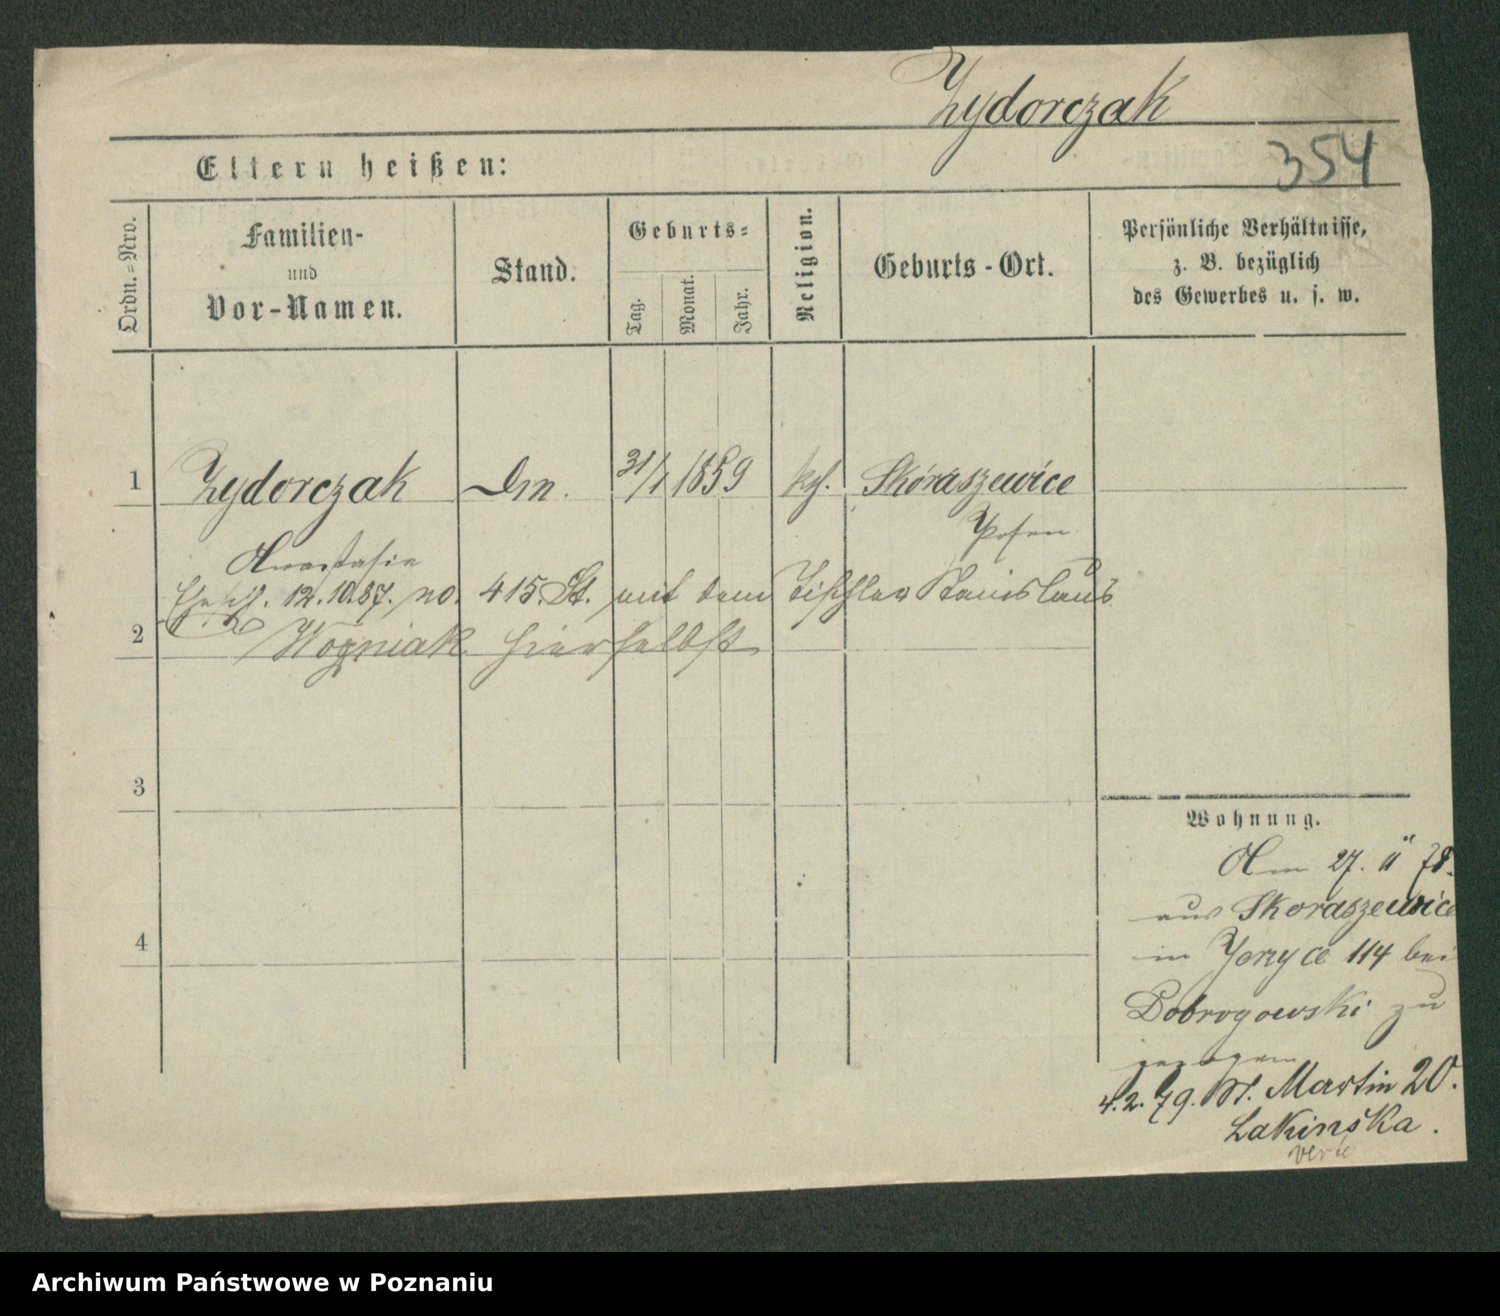 Zydorczak
354
Eltern heißen:
Ordn.=Nro.
Familien-
und
Vor-Namen.
Stand.
Geburts=
Tag.
Monat.
Jahr.
Religion.
Geburts-Ort.
Persönliche Verhältnisse,
z. B. bezüglich
des Gewerbes u. s. w.
1 Zydorczak Dm. 31/1 1859 kth. Skóraszewice
Posen
Anastasia
12.10.87. no. 415. St. mit dem Tischler Stanislaus
2 Wozniak hierselbst
3
4
Wohnung.
Am 27. 11 78.
aus Skoraszewice
in Jerzyce 114 bei
Dobrogowski zu
gezogen
4.2.79. St. Martin 20.
Lakinska.